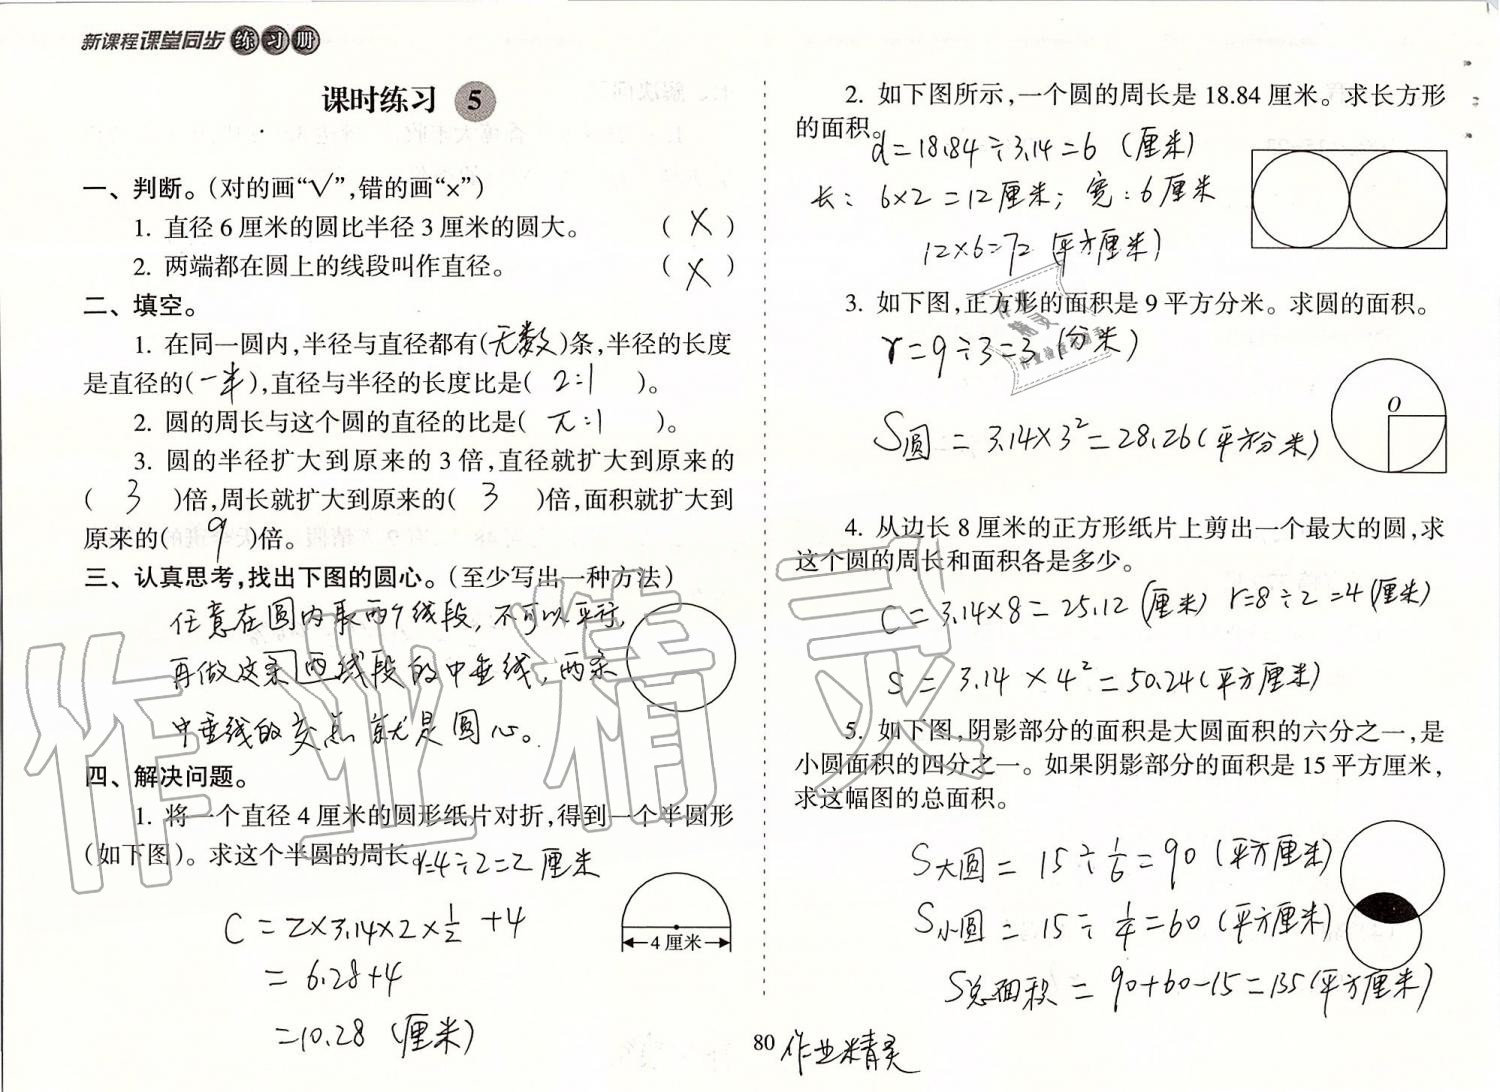 新课程课堂同步练习册
课时练习 5
一、判断。(对的画“√”,错的画“×”)
1. 直径 6 厘米的圆比半径 3 厘米的圆大。 ( X )
2. 两端都在圆上的线段叫作直径。 ( X )
二、填空。
1. 在同一圆内,半径与直径都有(无数)条,半径的长度
是直径的(一半),直径与半径的长度比是( 2:1 )。
2. 圆的周长与这个圆的直径的比是( π:1 )。
3. 圆的半径扩大到原来的 3 倍,直径就扩大到原来的
( 3 )倍,周长就扩大到原来的( 3 )倍,面积就扩大到
原来的( 9 )倍。
三、认真思考,找出下图的圆心。(至少写出一种方法)
任意在圆内取两个线段,不可以平行,
再做这条两线段的中垂线,两条
中垂线的交点就是圆心。
四、解决问题。
1. 将一个直径 4 厘米的圆形纸片对折,得到一个半圆形
(如下图)。求这个半圆的周长。r=4÷2=2 厘米
4 厘米
C=2×3.14×2×1/2+4
=6.28+4
=10.28 (厘米)
2. 如下图所示,一个圆的周长是 18.84 厘米。求长方形
的面积。
d=18.84÷3.14=6 (厘米)
长: 6×2=12厘米; 宽:6厘米
12×6=72 (平方厘米)
3. 如下图,正方形的面积是 9 平方分米。求圆的面积。
r=9÷3=3 (分米)
O
S圆=3.14×3²=28.26(平方分米)
4. 从边长 8 厘米的正方形纸片上剪出一个最大的圆,求
这个圆的周长和面积各是多少。
C=3.14×8=25.12(厘米) r=8÷2=4(厘米)
S=3.14×4²=50.24(平方厘米)
5. 如下图,阴影部分的面积是大圆面积的六分之一,是
小圆面积的四分之一。如果阴影部分的面积是 15 平方厘米,
求这幅图的总面积。
S大圆=15÷1/6=90(平方厘米)
S小圆=15÷1/4=60(平方厘米)
S总面积=90+60-15=135(平方厘米)
80
作业精灵
作业精灵